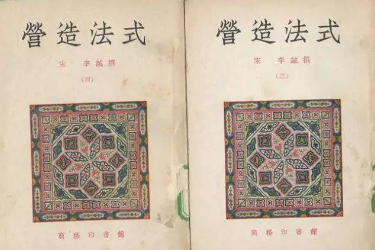 營造法式
宋 李誡撰
(四)
商務印書館
營造法式
宋 李誡撰
(三)
商務印書館